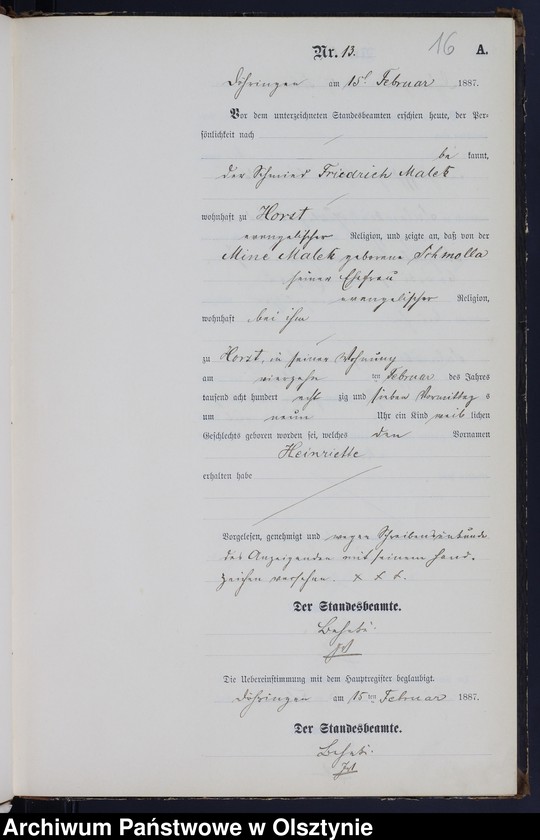 16
Nr. 13. A.
Döhringen am 15t Februar 1887.
Vor dem unterzeichneten Standesbeamten erschien heute, der Per-
sönlichkeit nach
be kannt,
der Schmied Friedrich Malek
wohnhaft zu Horst
evangelischer Religion, und zeigte an, daß von der
Mine Malek geborene Schmolla
seiner Ehefrau
evangelischer Religion,
wohnhaft bei ihm
zu Horst, in seiner Wohnung
am vierzehn ten Februar des Jahres
tausend acht hundert acht zig und sieben Vormittag s
um neun Uhr ein Kind weib lichen
Geschlechts geboren worden sei, welches den Vornamen
Heinriette
erhalten habe
Vorgelesen, genehmigt und wegen Schreibensunkunde
des Anzeigenden mit seinem Hand-
zeichen versehen. x x x.
Der Standesbeamte.
Die Uebereinstimmung mit dem Hauptregister beglaubigt.
Döhringen am 15 ten Februar 1887.
Der Standesbeamte.
Archiwum Państwowe w Olsztynie